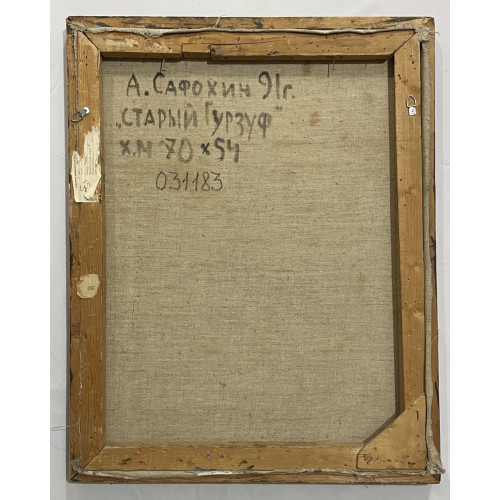 А. Сафохин 91г.
„СТАРЫЙ ГУРЗУФ"
Х.М 70 х 54
031183